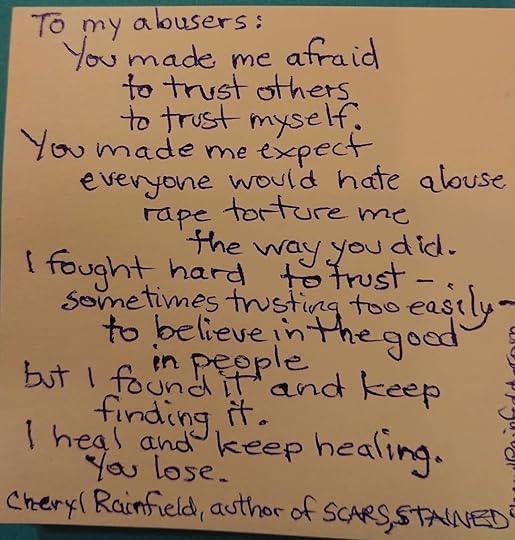 To my abusers:
You made me afraid
to trust others
to trust myself.
You made me expect
everyone would hate abuse
rape torture me
the way you did.
I fought hard to trust -
sometimes trusting too easily -
to believe in the good
in people
but I found it and keep
finding it.
I heal and keep healing.
You lose.
Cheryl Rainfield, author of SCARS, STAINED
CherylRainfield.com